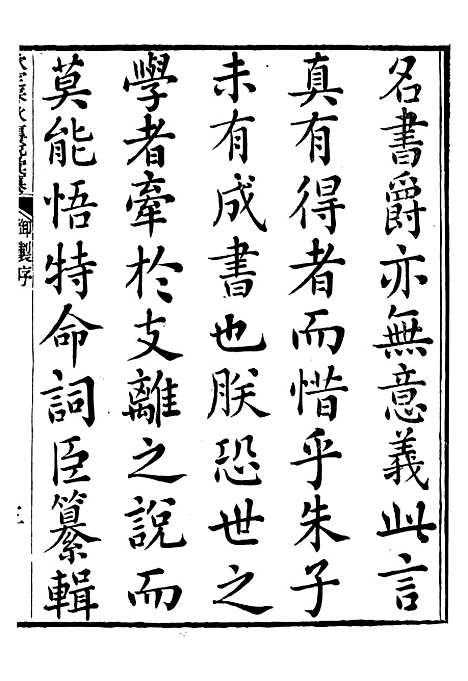 名書爵亦無意義此言
真有得者而惜乎朱子
未有成書也朕恐世之
學者牽於支離之說而
莫能悟特命詞臣纂輯
御製序